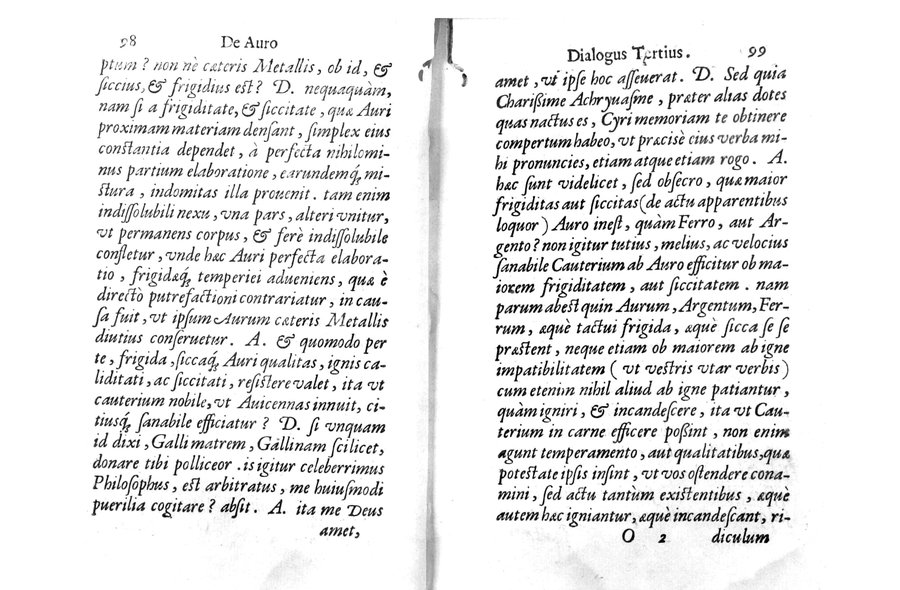 98 De Auro
ptum? non nè cæteris Metallis, ob id, &
ſiccius, & frigidius eſt? D. nequaquàm,
nam ſi a frigiditate, & ſiccitate, quæ Auri
proximam materiam denſant, ſimplex eius
conſtantia dependet, à perfecta nihilomi-
nus partium elaboratione, earundemq́; mi-
ſtura, indomitas illa prouenit. tam enim
indiſſolubili nexu, vna pars, alteri vnitur,
vt permanens corpus, & ferè indiſſolubile
confletur, vnde hæc Auri perfecta elabora-
tio, frigidæq́; temperiei adueniens, quæ è
directo putrefactioni contrariatur, in cau-
ſa fuit, vt ipſum Aurum cæteris Metallis
diutius conſeruetur. A. & quomodo per
te, frigida, ſiccaq́; Auri qualitas, ignis ca-
liditati, ac ſiccitati, reſiſtere valet, ita vt
cauterium nobile, vt Auicennas innuit, ci-
tiusq́; ſanabile efficiatur? D. ſi vnquam
id dixi, Galli matrem, Gallinam ſcilicet,
donare tibi polliceor. is igitur celeberrimus
Philoſophus, eſt arbitratus, me huiuſmodi
puerilia cogitare? abſit. A. ita me Deus
amet,
Dialogus Tertius. 99
amet, vt ipſe hoc aſſeuerat. D. Sed quia
Chariſſime Achryuaſme, præter alias dotes
quas nactus es, Cyri memoriam te obtinere
compertum habeo, vt præcisè eius verba mi-
hi pronuncies, etiam atque etiam rogo. A.
hæc ſunt videlicet, ſed obſecro, quæ maior
frigiditas aut ſiccitas (de actu apparentibus
loquor) Auro ineſt, quàm Ferro, aut Ar-
gento? non igitur tutius, melius, ac velocius
ſanabile Cauterium ab Auro efficitur ob ma-
iorem frigiditatem, aut ſiccitatem. nam
parum abeſt quin Aurum, Argentum, Fer-
rum, æquè tactui frigida, æquè ſicca ſe ſe
præſtent, neque etiam ob maiorem ab igne
impatibilitatem (vt veſtris vtar verbis)
cum etenim nihil aliud ab igne patiantur,
quàm igniri, & incandeſcere, ita vt Cau-
terium in carne efficere poſſint, non enim
agunt temperamento, aut qualitatibus, quæ
poteſtate ipſis inſint, vt vos oſtendere cona-
mini, ſed actu tantùm exiſtentibus, æquè
autem hæc igniantur, æquè incandeſcant, ri-
O 2 diculum